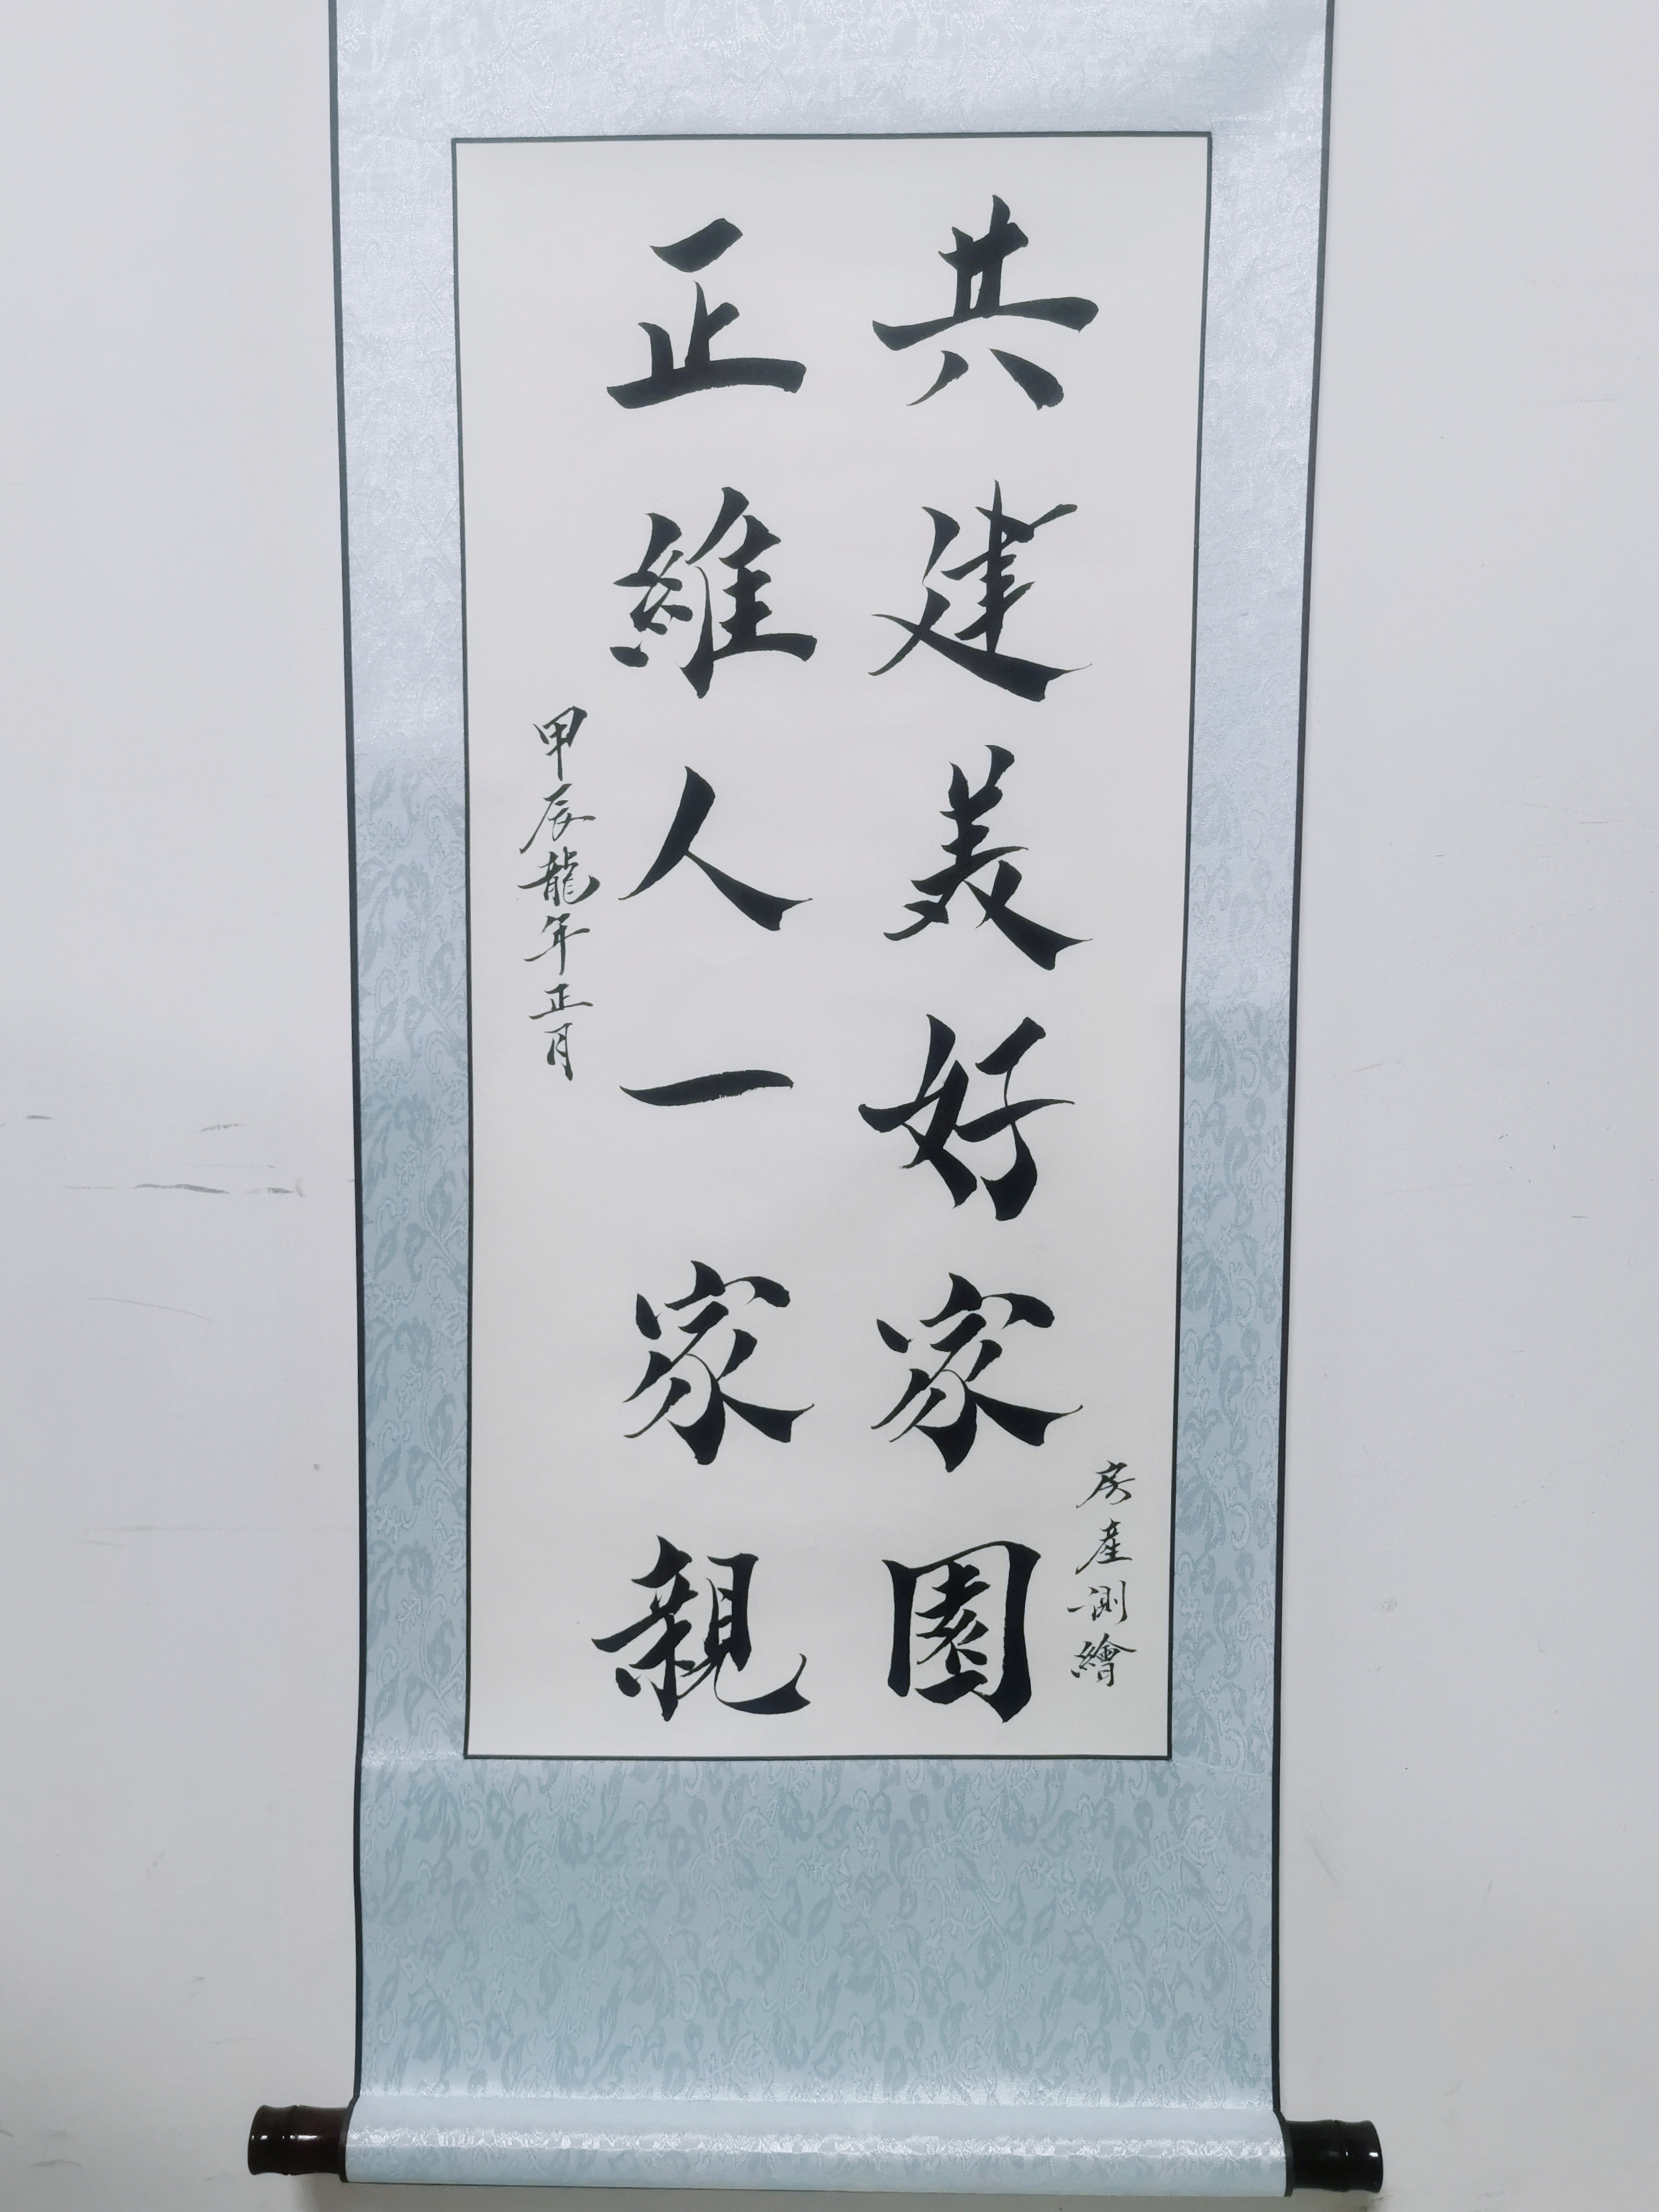 共建美好家園
房產測繪
正維人一家親
甲辰龍年正月